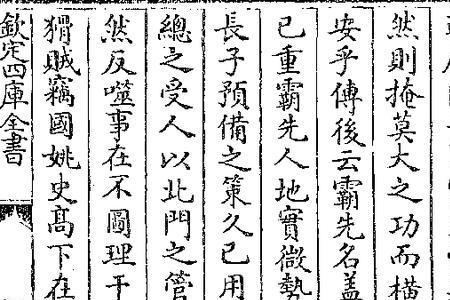 然則掩莫大之功而橫
安乎傳後云霸先名蓋
已重霸先人地實微勢
長子預備之策久已用
總之受人以北門之管
然反噬事在不圖理干
猾賊竊國姚史高下在
欽定四庫全書